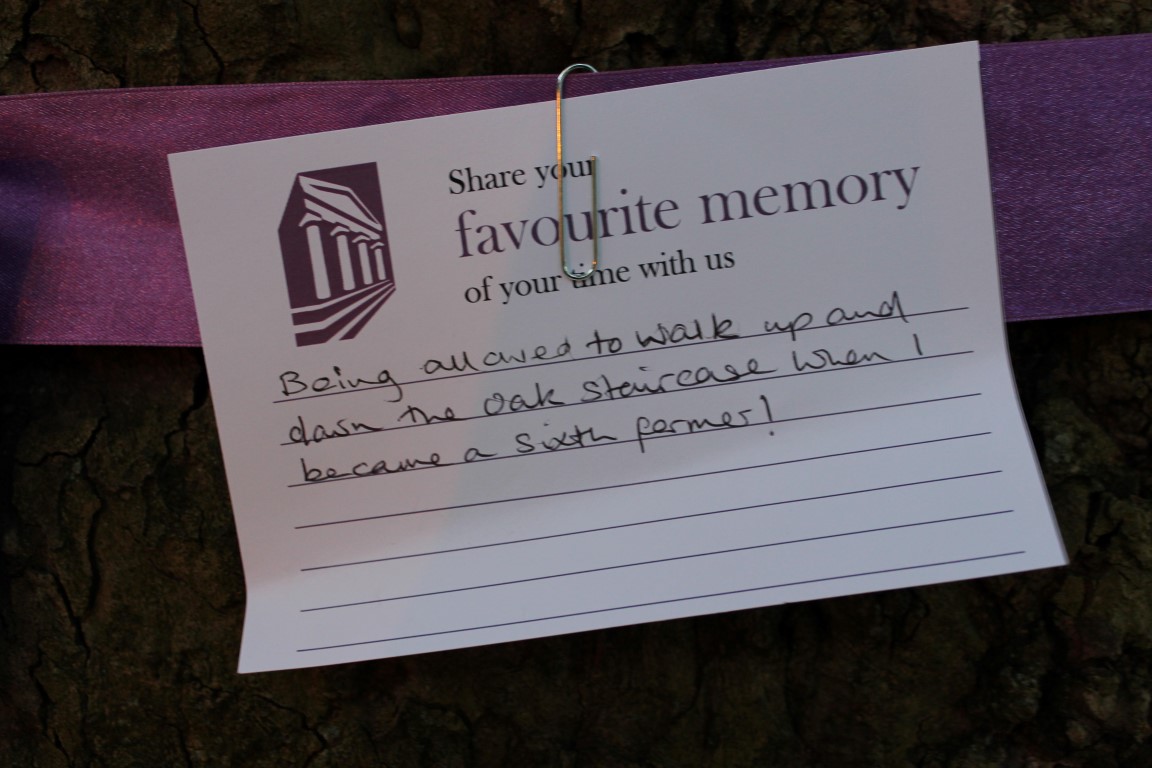 Share your
favourite memory
of your time with us
Being allowed to walk up and
down the oak staircase when I
became a sixth former!